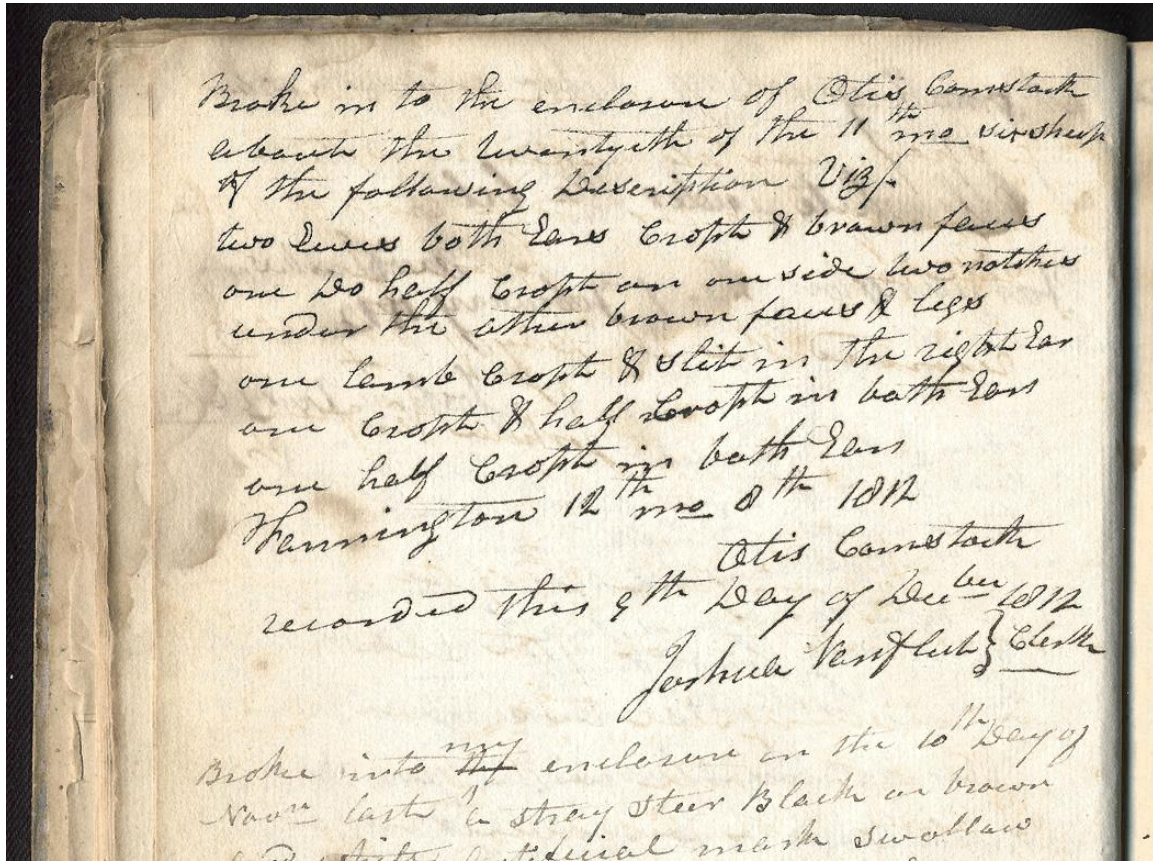 Broke in to the enclosure of Otis Comstock
about the twentyeth of the 11th mo six sheep
of the following Description Viz/.
two Ewes both Ears Cropt & brown faces
one Do half Cropt on one side two notches
under the other brown faces & legs
one lamb Cropt & slit in the right Ear
one Cropt & half Cropt in both Ears
one half Cropt in both Ears
Farmington 12th mo 8th 1812
Otis Comstock
recorded this 9th Day of Decber 1812
Joshua Vanfleet } Clerk
Broke into my enclosure on the 10th Day of
Novm last a stray steer Black or brown
artificial mark swollow